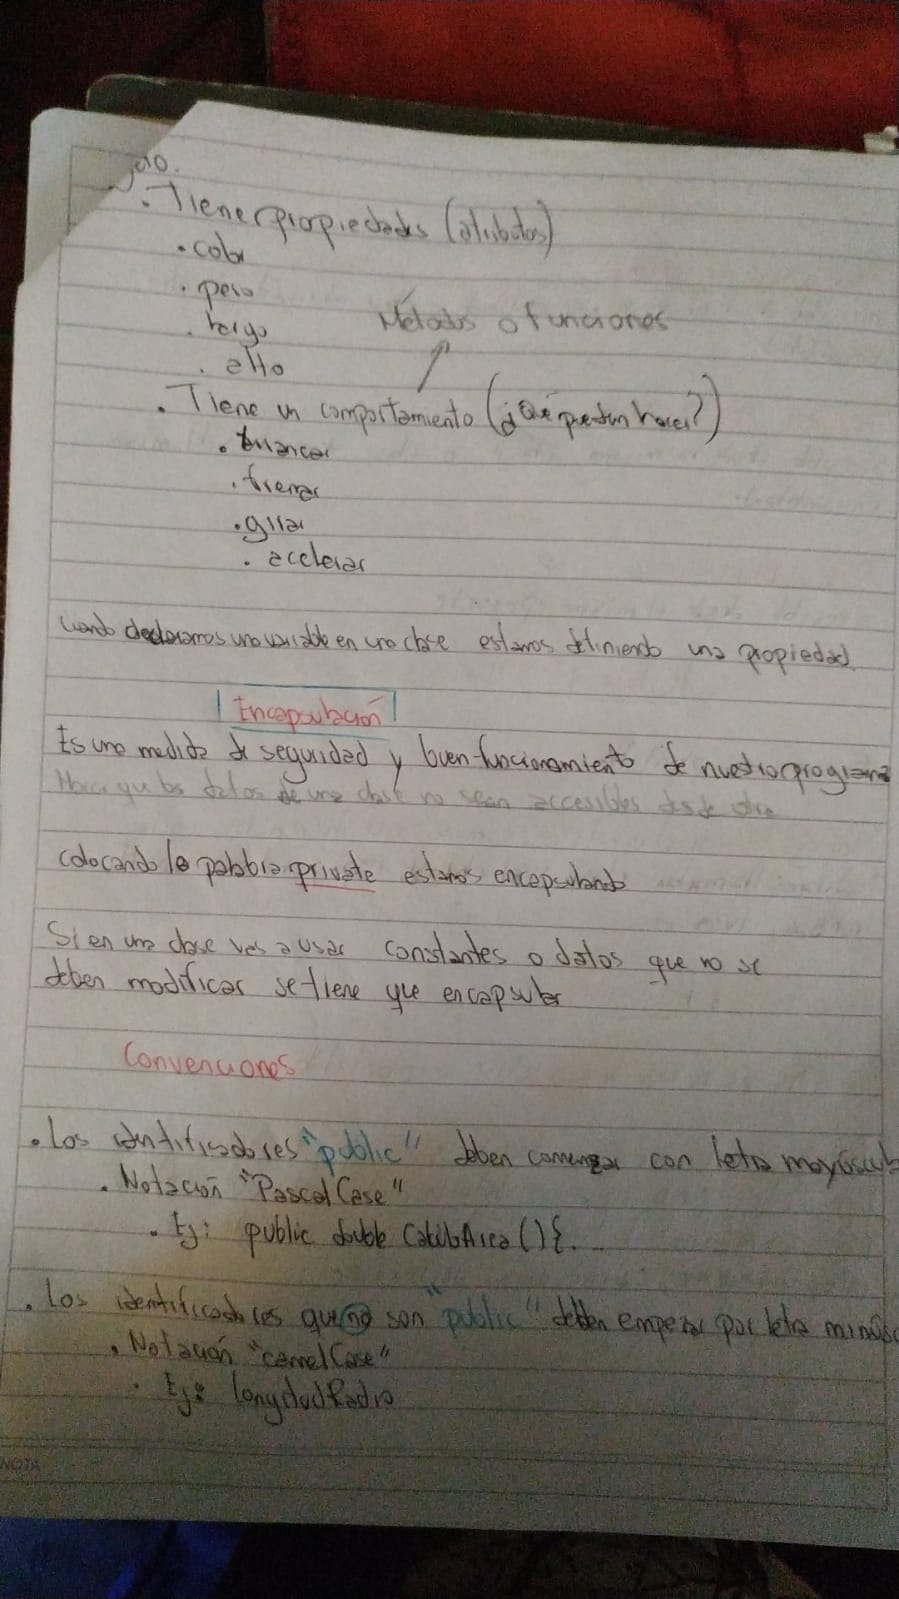 . Tiene propiedades (atributos)
. color
. peso
. largo
. alto
Métodos o funciones
. Tiene un comportamiento (¿Qué pueden hacer?)
. arrancar
. frenar
. girar
. acelerar
Cuando declaramos una variable en una clase estamos definiendo una propiedad.
Encapsulación
Es una medida de seguridad y buen funcionamiento de nuestro programa
Hace que los datos de una clase no sean accesibles desde otra
colocando la palabra private estamos encapsulando
Si en una clase vas a usar constantes o datos que no se
deben modificar se tiene que encapsular
Convenciones
. Los identificadores "public" deben comenzar con letra mayúscula
. Notación "PascalCase"
. Ej: public double CalculoArea(){...
. Los identificadores que no son "public" deben empezar por letra minúsc
. Notación "camelCase"
. Ej: longitudRadio
NOTA